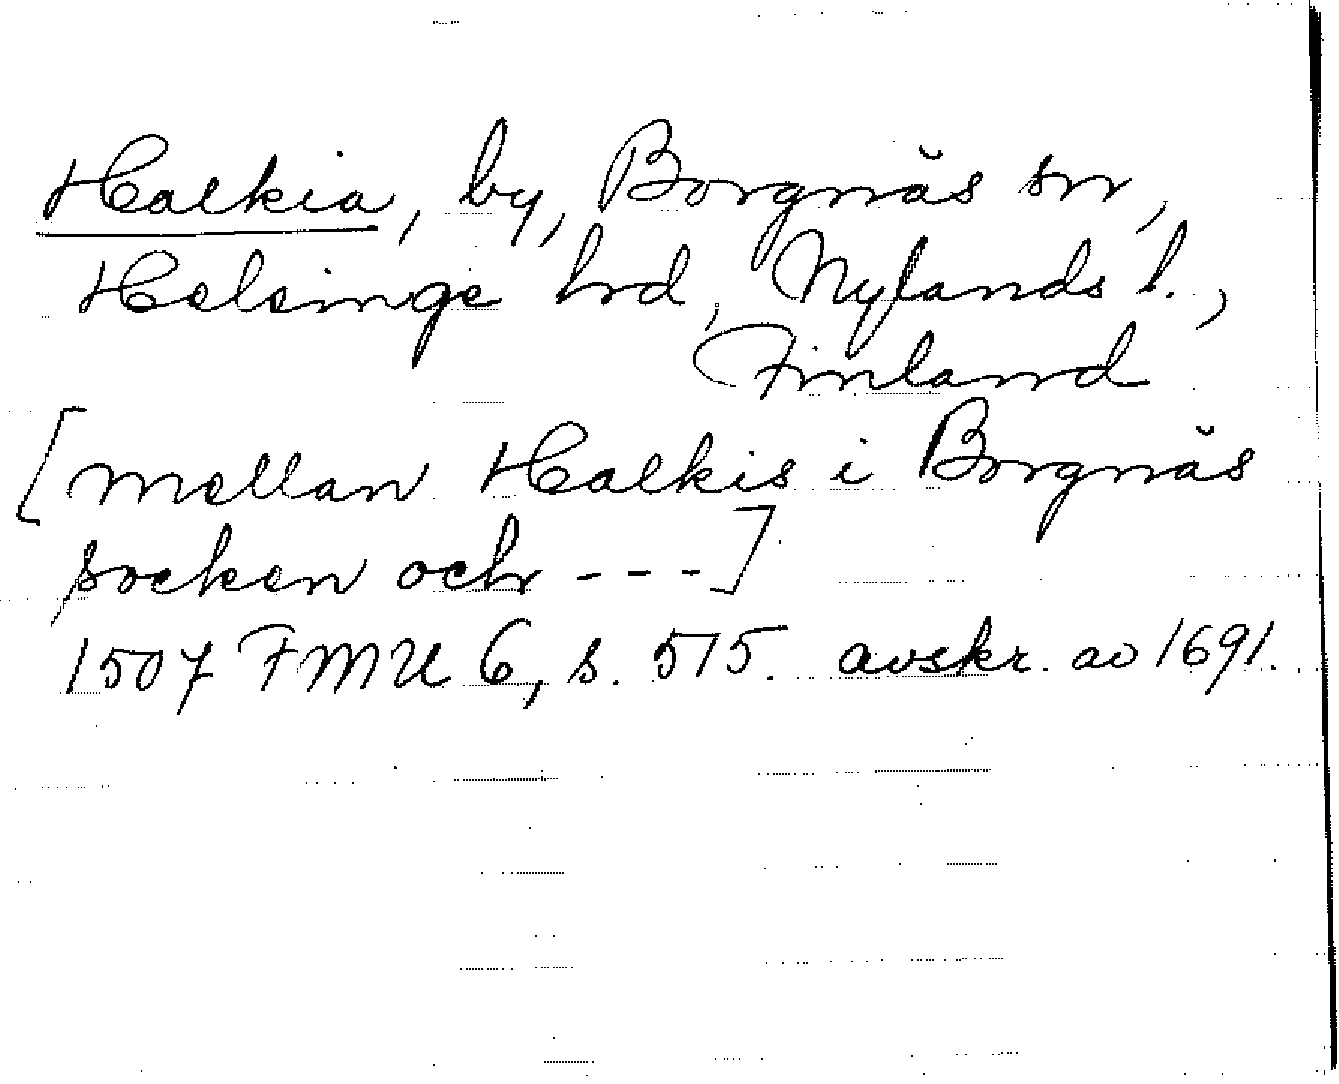 Halkia, by, Borgnäs sn,
Helsinge hrd, Nylands l.,
Finland
[mellan Halkis i Borgnäs
socken och ---]
1507 FMU 6, s. 515. avskr. av 1691.